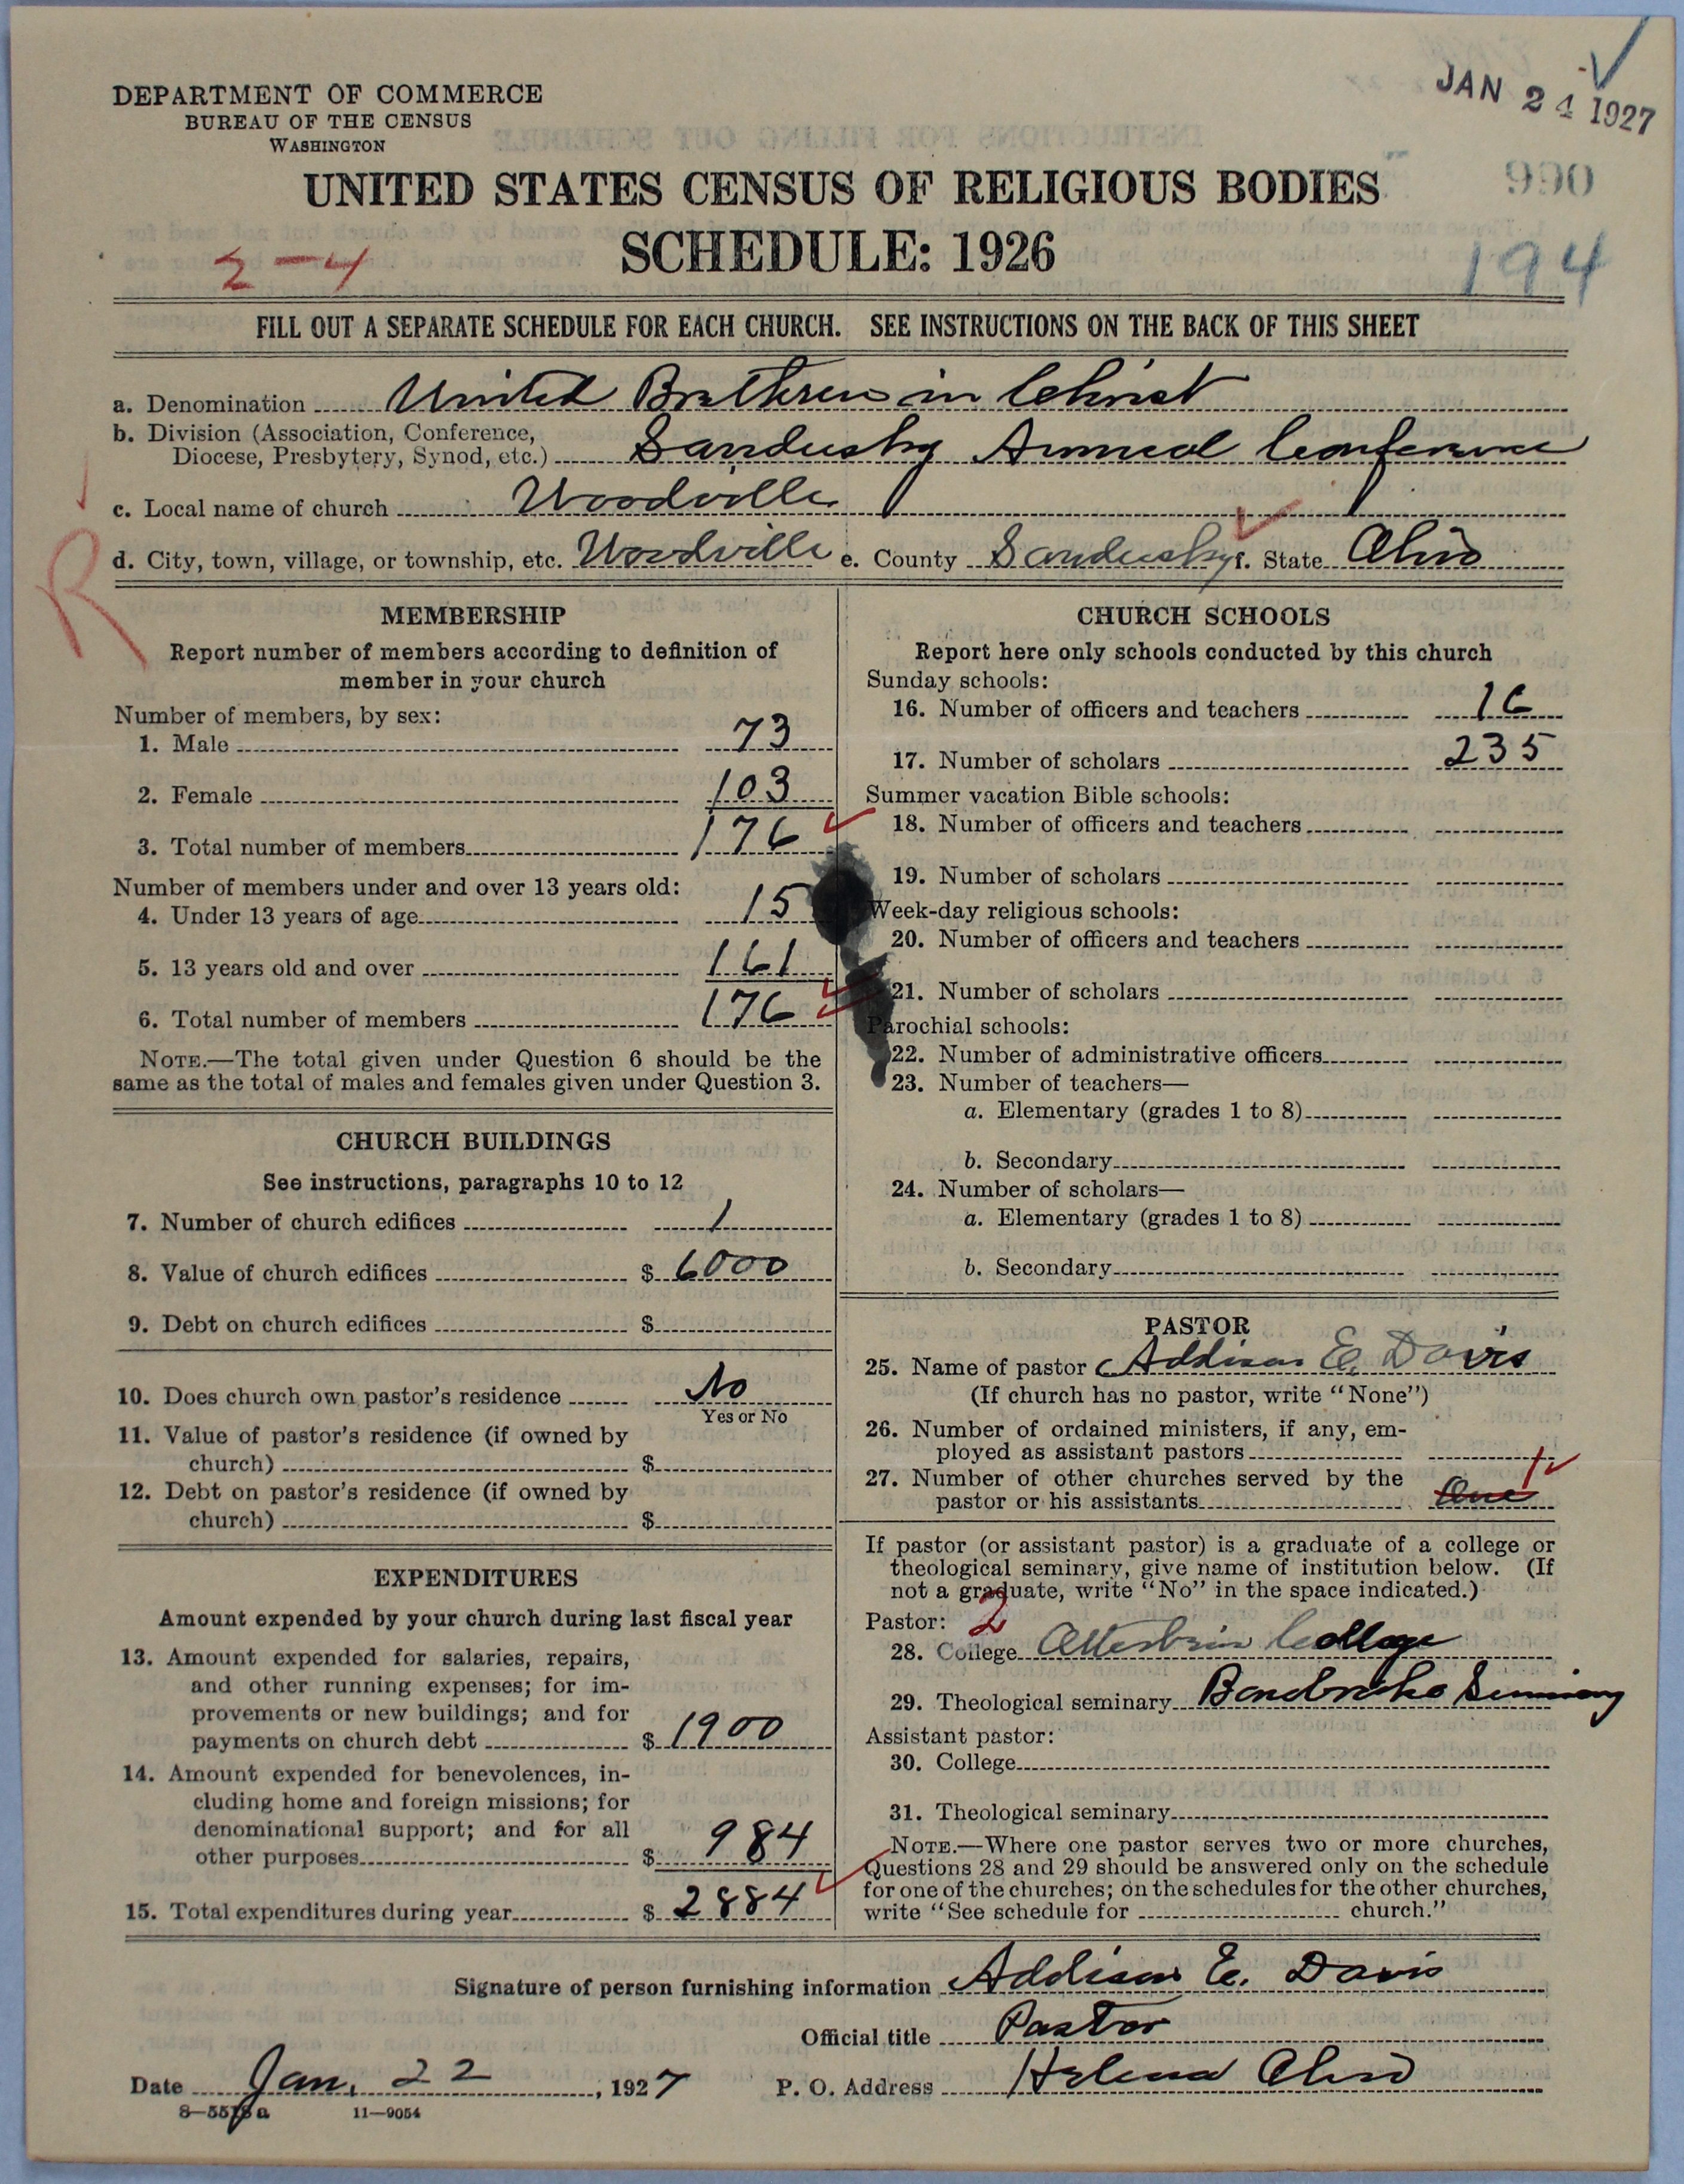 JAN 24 1927
DEPARTMENT OF COMMERCE
BUREAU OF THE CENSUS
WASHINGTON
990
UNITED STATES CENSUS OF RELIGIOUS BODIES
SCHEDULE: 1926
2-4
194
FILL OUT A SEPARATE SCHEDULE FOR EACH CHURCH. SEE INSTRUCTIONS ON THE BACK OF THIS SHEET
a. Denomination United Brethren in Christ
b. Division (Association, Conference,
Diocese, Presbytery, Synod, etc.) Sandusky Annual Conference
c. Local name of church Woodville
d. City, town, village, or township, etc. Woodville e. County Sandusky f. State Ohio
R
MEMBERSHIP
Report number of members according to definition of
member in your church
Number of members, by sex:
1. Male 73
2. Female 103
3. Total number of members 176
Number of members under and over 13 years old:
4. Under 13 years of age 15
5. 13 years old and over 161
6. Total number of members 176
NOTE.—The total given under Question 6 should be the
same as the total of males and females given under Question 3.
CHURCH BUILDINGS
See instructions, paragraphs 10 to 12
7. Number of church edifices 1
8. Value of church edifices $ 6000
9. Debt on church edifices $
10. Does church own pastor's residence No
Yes or No
11. Value of pastor's residence (if owned by
church) $
12. Debt on pastor's residence (if owned by
church) $
EXPENDITURES
Amount expended by your church during last fiscal year
13. Amount expended for salaries, repairs,
and other running expenses; for im-
provements or new buildings; and for
payments on church debt $ 1900
14. Amount expended for benevolences, in-
cluding home and foreign missions; for
denominational support; and for all
other purposes $ 984
15. Total expenditures during year $ 2884
CHURCH SCHOOLS
Report here only schools conducted by this church
Sunday schools:
16. Number of officers and teachers 16
17. Number of scholars 235
Summer vacation Bible schools:
18. Number of officers and teachers
19. Number of scholars
Week-day religious schools:
20. Number of officers and teachers
21. Number of scholars
Parochial schools:
22. Number of administrative officers
23. Number of teachers—
a. Elementary (grades 1 to 8)
b. Secondary
24. Number of scholars—
a. Elementary (grades 1 to 8)
b. Secondary
PASTOR
25. Name of pastor Addison E. Davis
(If church has no pastor, write "None")
26. Number of ordained ministers, if any, em-
ployed as assistant pastors
27. Number of other churches served by the
pastor or his assistants One 1
If pastor (or assistant pastor) is a graduate of a college or
theological seminary, give name of institution below. (If
not a graduate, write "No" in the space indicated.)
Pastor: 2
28. College Otterbein College
29. Theological seminary Bonebrake Seminary
Assistant pastor:
30. College
31. Theological seminary
NOTE.—Where one pastor serves two or more churches,
Questions 28 and 29 should be answered only on the schedule
for one of the churches; on the schedules for the other churches,
write "See schedule for church."
Signature of person furnishing information Addison E. Davis
Official title Pastor
Date Jan. 22, 1927 P. O. Address Helena Ohio
8—5518 a 11—9054